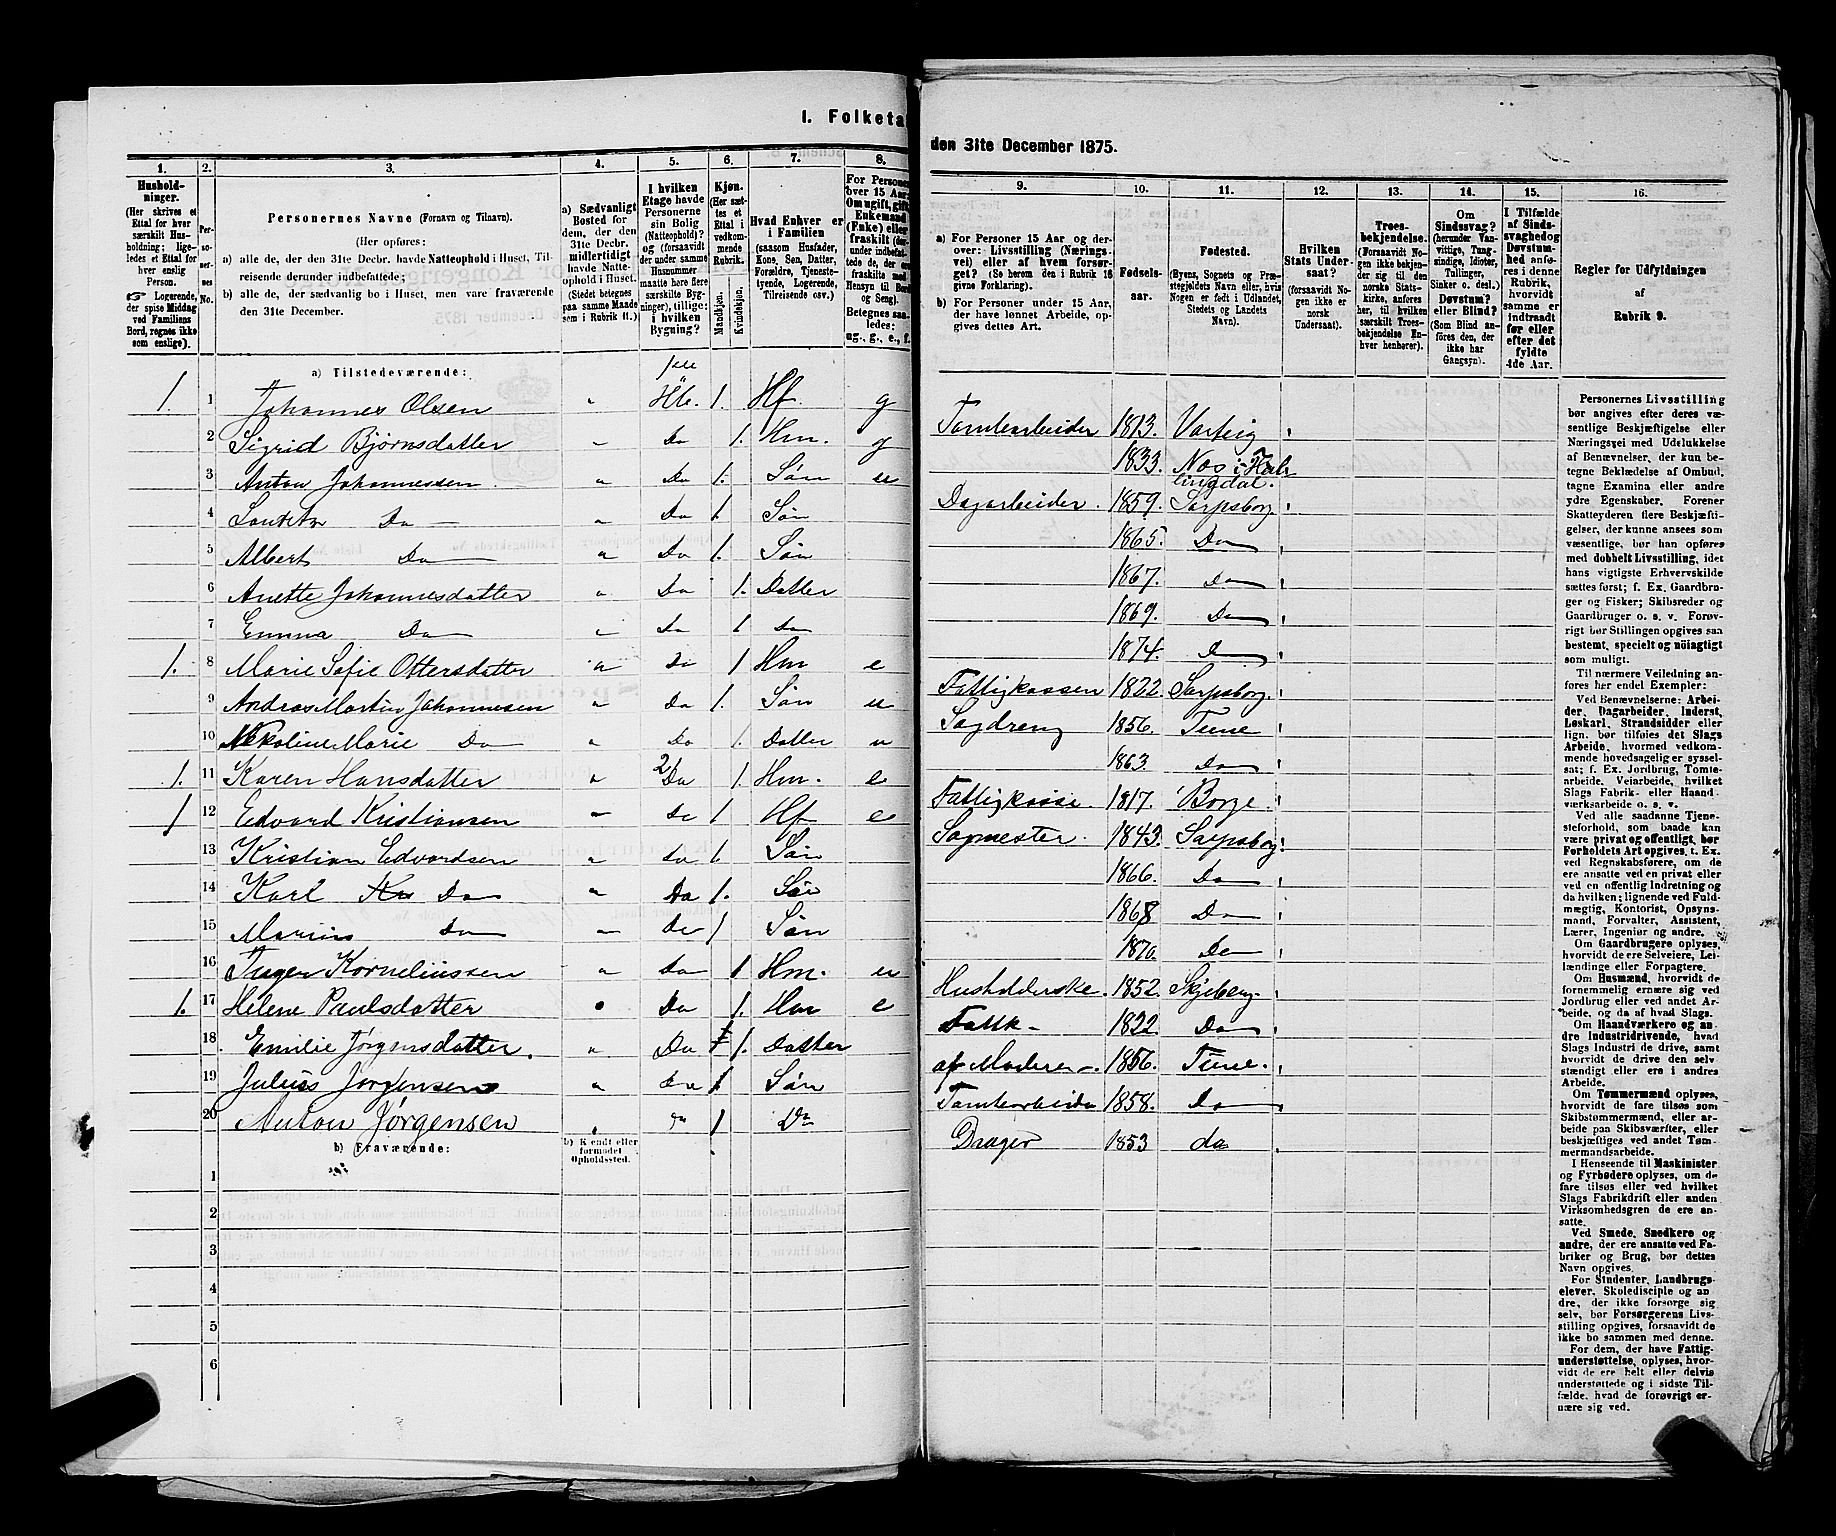 I. Folketal
den 31te December 1875.
1. 2. 3. 4. 5. 6. 7. 8. 9. 10. 11. 12. 13. 14. 15. 16.
Husholdninger. (Her skrives et Ettal for hver særskilt Husholdning; ligeledes et Ettal for hver enslig Person. ☞ Logerende, der spise Middag ved Familiens Bord, regnes ikke som enslige).
Personernes No.
Personernes Navne (Fornavn og Tilnavn).
(Her opføres:
a) alle de, der den 31te Decbr. havde Natteophold i Huset, Tilreisende derunder indbefattede;
b) alle de, der sædvanlig bo i Huset, men vare fraværende den 31te December.
a) Sædvanligt Bosted for dem, der den 31te Decbr. midlertidigt havde Natteophold i Huset. (Stedet betegnes paa samme Maade som i Rubrik 11.)
I hvilken Etage havde Personerne sin Bolig (Natteophold)? og (forsaavidt der under samme Husnummer maatte høre flere særskilte Bygninger), tillige: i hvilken Bygning?
Kjøn. (Her sættes et Ettal i vedkommende Rubrik. Mandkjøn. Kvindekjøn.
Hvad Enhver er i Familien (saasom Husfader, Kone, Søn, Datter, Forældre, Tjenestetyende, Logerende, Tilreisende osv.)
For Personer over 15 Aar: Om ugift, gift, Enkemand (Enke) eller fraskilt
Betegnes saaledes: ug., g., e., f.
a) For Personer 15 Aar og derover: Livsstilling (Næringsvei) eller af hvem forsørget? (Se herom den i Rubrik 16 givne Forklaring).
b) For Personer under 15 Aar, der have lønnet Arbeide, opgives dettes Art.
Fødselsaar.
Fødested. (Byens, Sognets og Præstegjeldets Navn, eller, hvis Nogen er født i Udlandet, Stedets og Landets Navn).
Hvilken Stats Undersaat? (forsaavidt Nogen ikke er norsk Undersaat).
Troesbekjendelse. (Forsaavidt Nogen ikke bekjender sig til den norske Statskirke, anføres her, til hvilken særskilt Troesbekjendelse Enhver henhører).
Om Sindssvag? (herunder Vanvittige, Tungsindige, Idioter, Tullinger, Sinker o. desl.) Døvstum? eller Blind? (Som Blind anføres den, der ikke har Gangsyn).
I Tilfælde af Sindssvaghed og Døvstumhed anføres i denne Rubrik, hvorvidt samme er indtraadt før eller efter det fyldte 4de Aar.
Regler for Udfyldningen af Rubrik 9.
a) Tilstedeværende:
1. 1 Johannes Olsen " 1ste Hte. 1. Hf. g Tomtearbeider 1813. Varteig
2 Sigrid Bjørnsdatter " Do 1. Hm. g 1833. Nes i Hallingdal.
3 Anton Johannessen " Do 1. Søn u Dagarbeider. 1859. Sarpsborg
4 Do " Do 1. Søn 1865. Do
5 Albert Do " Do 1. Søn 1867. Do
6 Anette Johannesdatter " Do 1. Datter 1869. Do
7 Emma Do " Do 1 Do 1874. Do
1. 8 Marie Sofie Ottersdatter " Do 1 Hm e Fattigkassen 1822. Sarpsborg.
9 Andras Martin Johannesen " Do 1. Søn u Sagdreng 1856. Tune
10 Nikoline Marie Do " Do 1. Datter u 1863. Do
1. 11 Karen Hansdatter " 2 Do 1. Hm. e Fattigkasse. 1817. Borge
1 12 Edvard Kristiansen " Do 1 Hf e Sagmester. 1843. Sarpsborg
13 Kristian Edvardsen " Do 1. Søn 1866. Do
14 Karl Do " Do 1. Søn 1868 Do
15 Marius Do " Do 1 Søn 1870. Do
16 Inger Korneliussen " Do 1 Hm. u Husholderske. 1852. Skjeberg
1. 17 Helene Paulsdatter " Do 1. Hm e Fattk 1822. Do
18 Emilie Jørgensdatter. " Do 1. Datter af Moderen 1856. Tune.
19 Julius Jørgensen " Do 1 Søn Tomtearbeider 1858. Do
20 Anton Jørgensen " Do 1 Do Drager 1853 do
b) Fraværende:
b) Kjendt eller formodet Opholdssted.
1
2
3
4
5
6
Personernes Livsstilling
bør angives efter deres væ-
sentlige Beskjæftigelse eller
Næringsvei med Udelukkelse
af Benævnelser, der kun be-
tegne Beklædelse af Ombud,
tagne Examina eller andre
ydre Egenskaber. Forener
Skatteyderen flere Beskjæfti-
gelser, der kunne ansees som
væsentlige, bør han opføres
med dobbelt Livsstilling, idet
hans vigtigste Erhvervskilde
sættes først; f. Ex. Gaardbru-
ger og Fisker; Skibsreder og
Gaardbruger o. s. v. Forøv-
rigt bør Stillingen opgives saa
bestemt, specielt og nøiagtigt
som muligt.
Til nærmere Veiledning an-
føres her endel Exempler:
Ved Benævnelserne: Arbei-
der, Dagarbeider, Inderst,
Løskarl, Strandsidder eller
lign. bør tilføies det Slags
Arbeide, hvormed vedkom-
mende hovedsagelig er syssel-
sat; f. Ex. Jordbrug, Tomte-
arbeide, Veiarbeide, hvilket
Slags Fabrik- eller Haand-
værksarbeide o. s. v.
Ved alle saadanne Tjene-
steforhold, som baade kan
være privat og offentligt, bør
Forholdets Art opgives, t. Ex.
ved Regnskabsførere, om de
ere ansatte ved en privat eller
ved en offentlig Indretning og
da hvilken; lignende ved Fuld-
mægtig, Kontorist, Opsyns-
mand, Forvalter, Assistent,
Lærer, Ingeniør og andre.
Om Gaardbrugere oplyses,
hvorvidt de ere Selveiere, Lei-
lændinge eller Forpagtere.
Om Husmænd, hvorvidt de
fornemmelig ernære sig ved
Jordbrug eller ved andet Ar-
beide, og da af hvad Slags.
Om Haandværkere og an-
dre Industridrivende, hvad
Slags Industri de drive, samt
hvorvidt de drive den selv-
stændigt eller ere i andres
Arbeide.
Om Tømmermænd oplyses,
hvorvidt de fare tilsøs som
Skibstømmermænd, eller ar-
beide paa Skibsværfter, eller
beskjæftiges ved andet Tøm-
mermandsarbeide.
I Henseende til Maskinister
og Fyrbødere oplyses, om de
fare tilsøs eller ved hvilket
Slags Fabrikdrift eller anden
Virksomhedsgren de ere an-
satte.
Ved Smede, Snedkere og
andre, der ere ansatte ved Fa-
briker og Brug, bør dettes
Navn opgives.
For Studenter, Landbrugs-
elever, Skoledisciple og an-
dre, der ikke forsørge sig
selv, bør Forsørgerens Livs-
stilling opgives, forsaavidt de
ikke bo sammen med denne.
For dem, der have Fattig-
understøttelse, oplyses, hvor-
vidt de ere helt eller delvis
understøttede og i sidste Til-
fælde, hvad de forøvrigt er-
nære sig ved.